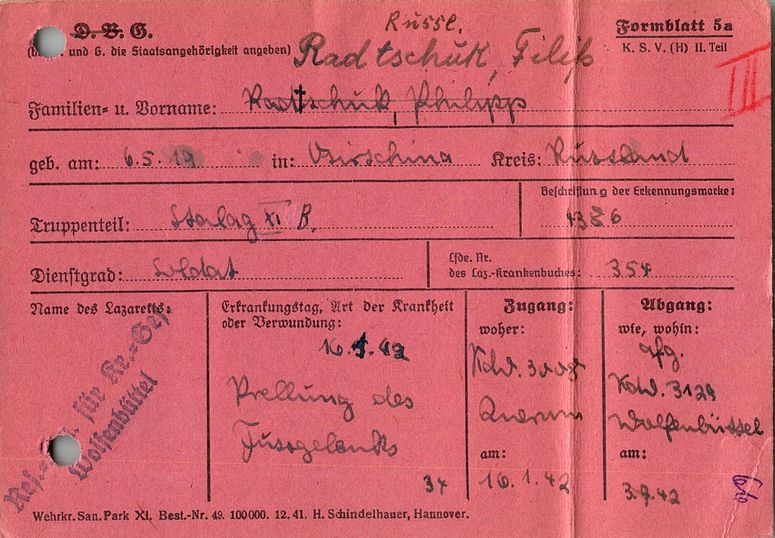 D. B. G. Russl. Formblatt 5a
und G. die Staatsangehörigkeit angeben) Radtschuk, Filip K. S. V. (H) II. Teil
III
Familien- u. Vorname: Radtschuk, Philipp
geb. am: 6.5.19 in: Kreis: Russland
Beschriftung der Erkennungsmarke:
Truppenteil: Stalag XI B.
Dienstgrad: Soldat
Lfde. Nr.
des Laz.-Krankenbuches: 354
Name des Lazaretts:
Res.-Laz. für Kr.-Gef.
Wolfenbüttel
Erkrankungstag, Art der Krankheit
oder Verwundung:
Prellung des
Fussgelenks
34
Zugang:
woher:
Kdo. 3005
Querum
am:
16.1.42
Abgang:
wie, wohin:
Kdo. 3129
Wolfenbüttel
am:
42
Wehrkr. San. Park XI. Best.-Nr. 49. 100000. 12. 41. H. Schindelhauer, Hannover.